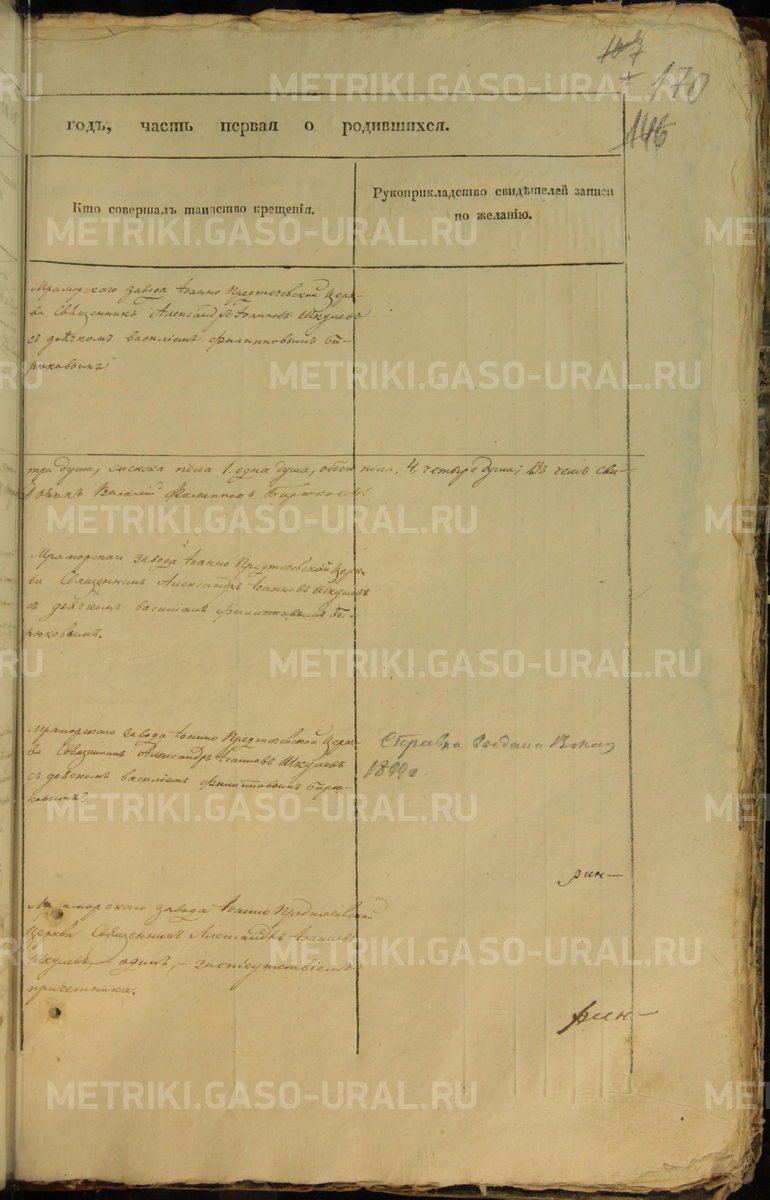 107
+ 170
146
годъ, часть первая о родившихся.
Кто совершалъ таинство крещенія.
Рукоприкладство свидѣтелей записи
по желанію.
Мраморскаго завода Іоанно Предтечевской Церк-
ви Священникъ Александръ Іоанновъ Шкулевъ
съ дьячкомъ Василіемъ Филипповымъ Би-
рюковымъ.
три души, женска пола 1. одна душа, обоего пола. 4, четыре души; Въ чемъ сви-
Дьячекъ Василій Филипповъ Бирюковъ.
Мраморскаго завода Іоанно Предтечевской Церк-
ви Священникъ Александръ Іоанновъ Шкулевъ
съ дьячкомъ Василіемъ Филипповымъ Би-
рюковымъ.
Мраморскаго завода Іоанно Предтечевской Церк-
ви Священникъ Александръ Іоанновъ Шкулевъ
съ дьячкомъ Василіемъ Филипповымъ Бирю-
ковымъ.
Справка выдана
1899 г
Мраморскаго завода Іоанно Предтечевской
Церкви Священникъ Александръ Іоанновъ
Шкулевъ одинъ, – за отсутствіемъ
причетника.
рик-
METRIKI.GASO-URAL.RU